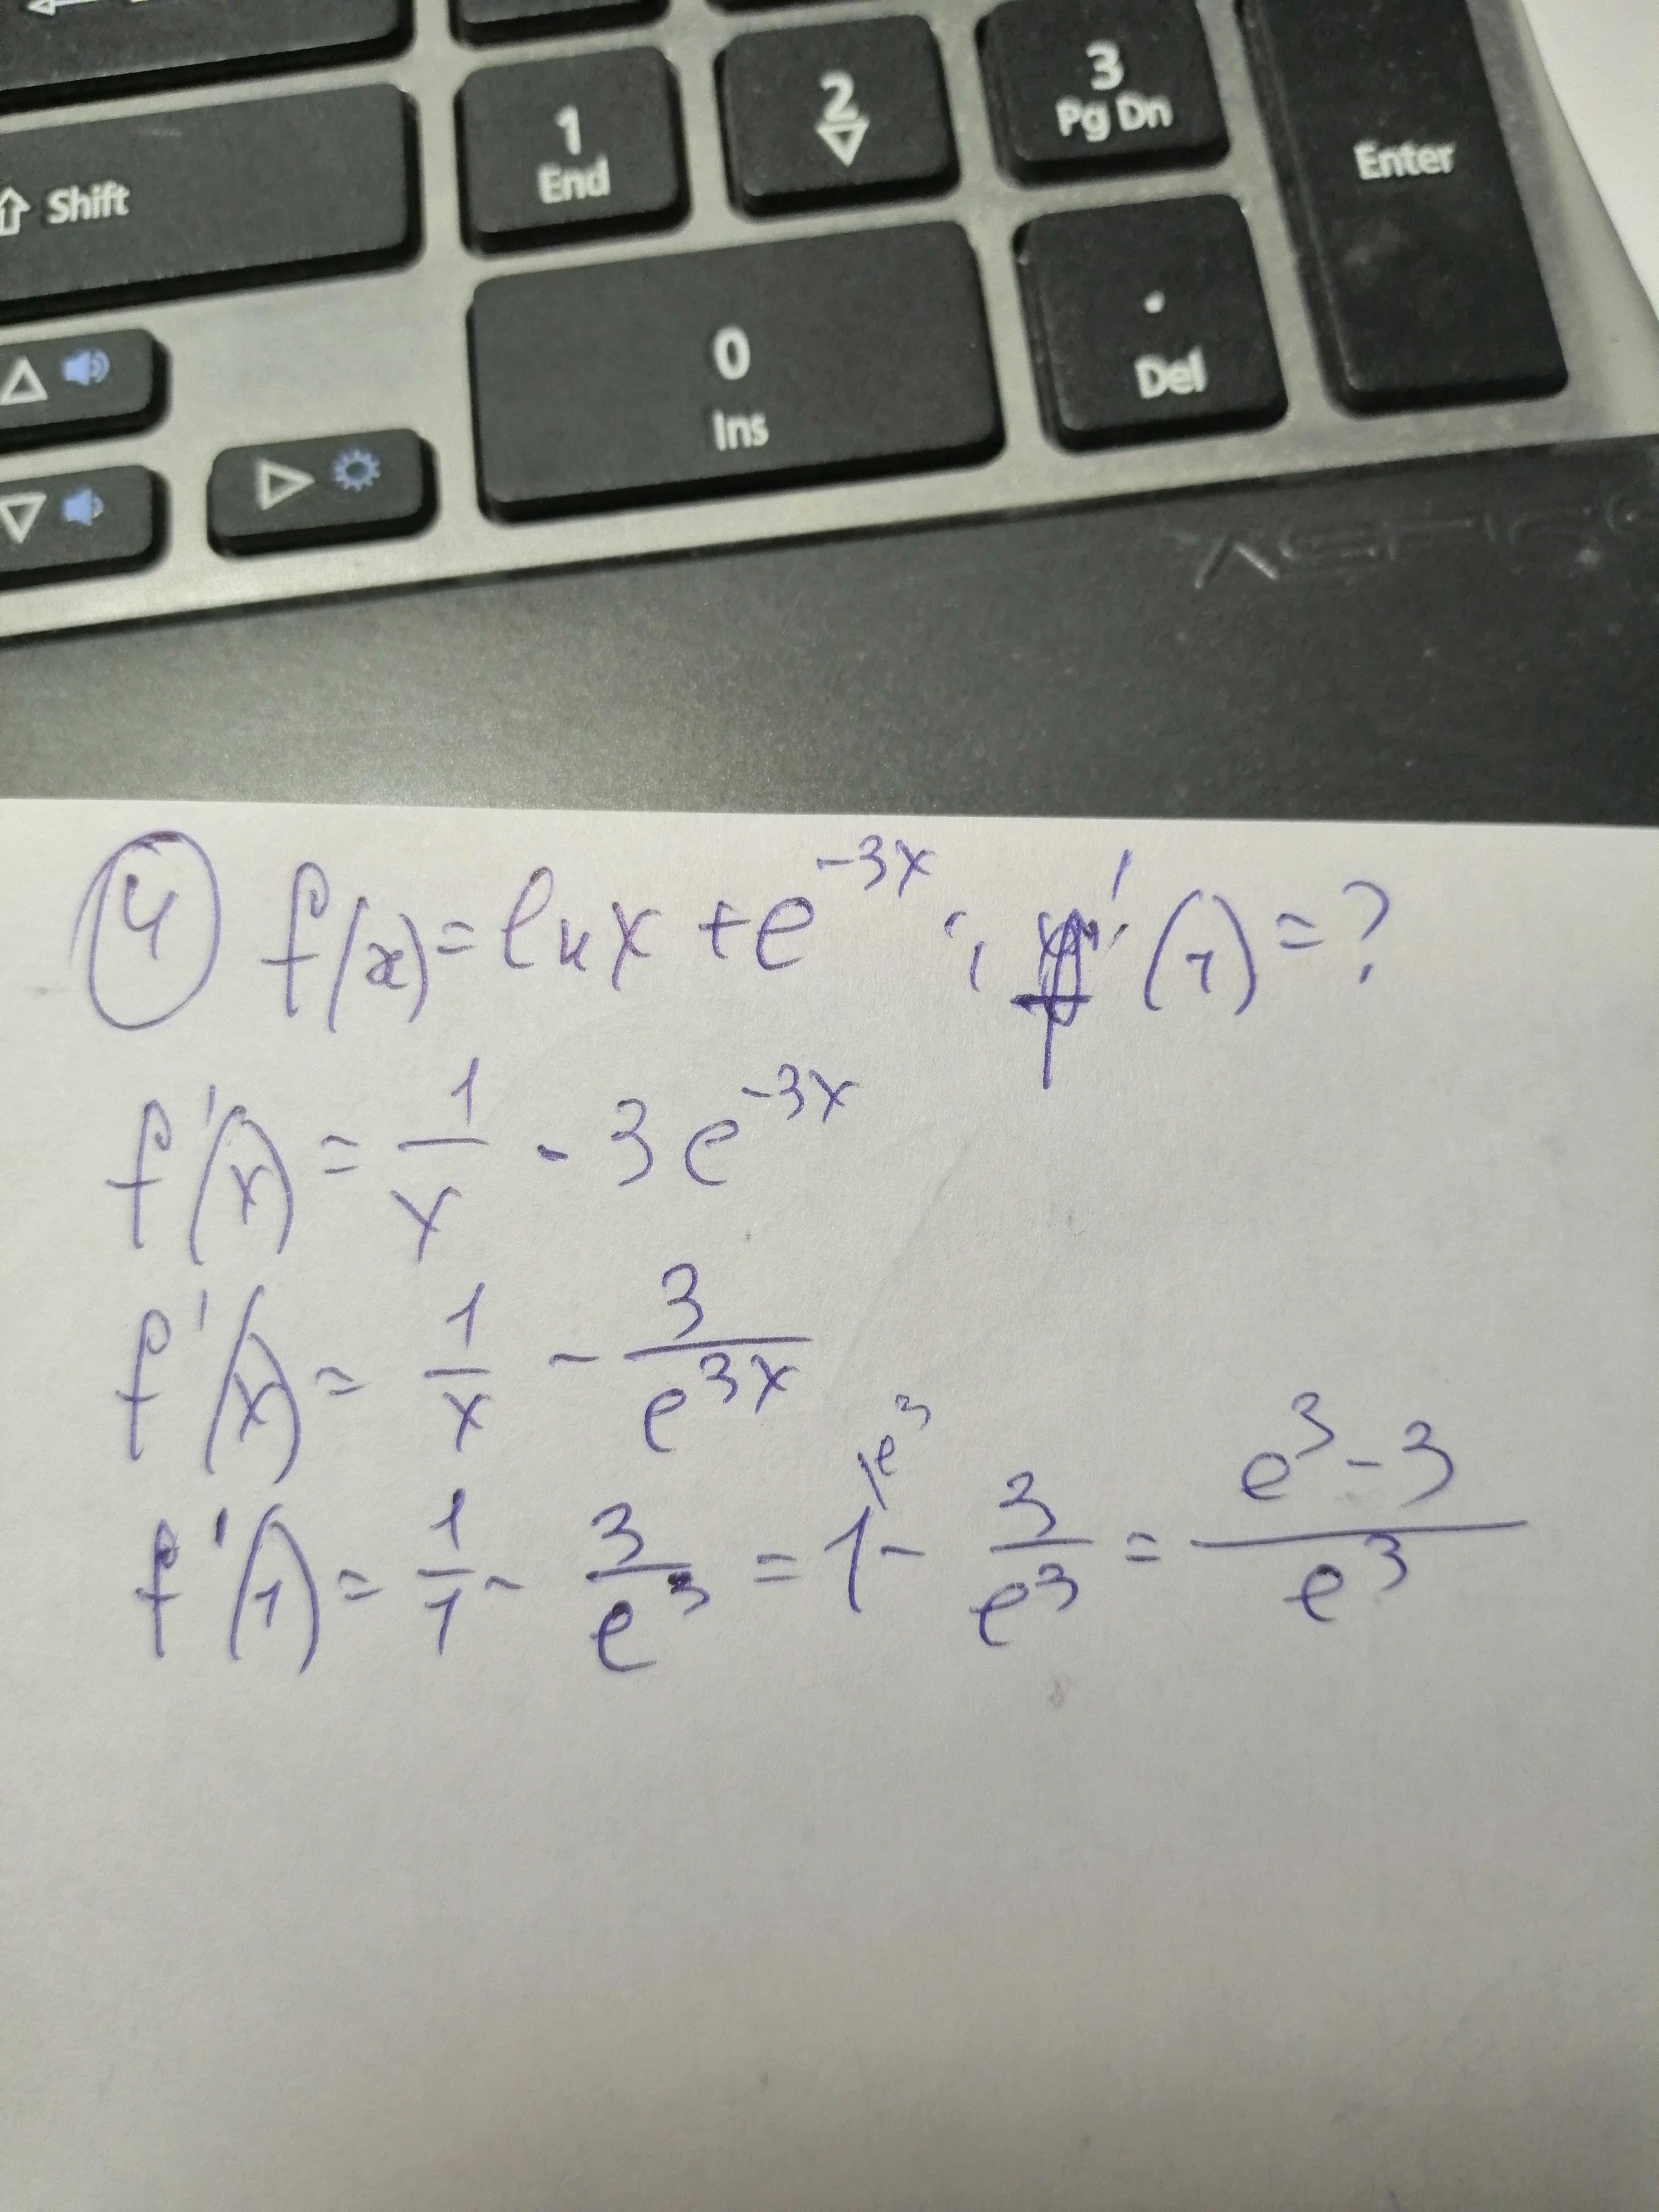 1
End
2
3
Pg Dn
Enter
Shift
0
Ins
.
Del
ASPIRE
4 f(x) = ln x + e^{-3x} ; f'(1) = ?
f'(x) = \frac{1}{x} - 3e^{-3x}
f'(x) = \frac{1}{x} - \frac{3}{e^{3x}}
f'(1) = \frac{1}{1} - \frac{3}{e^3} = 1^{\e^3} - \frac{3}{e^3} = \frac{e^3 - 3}{e^3}